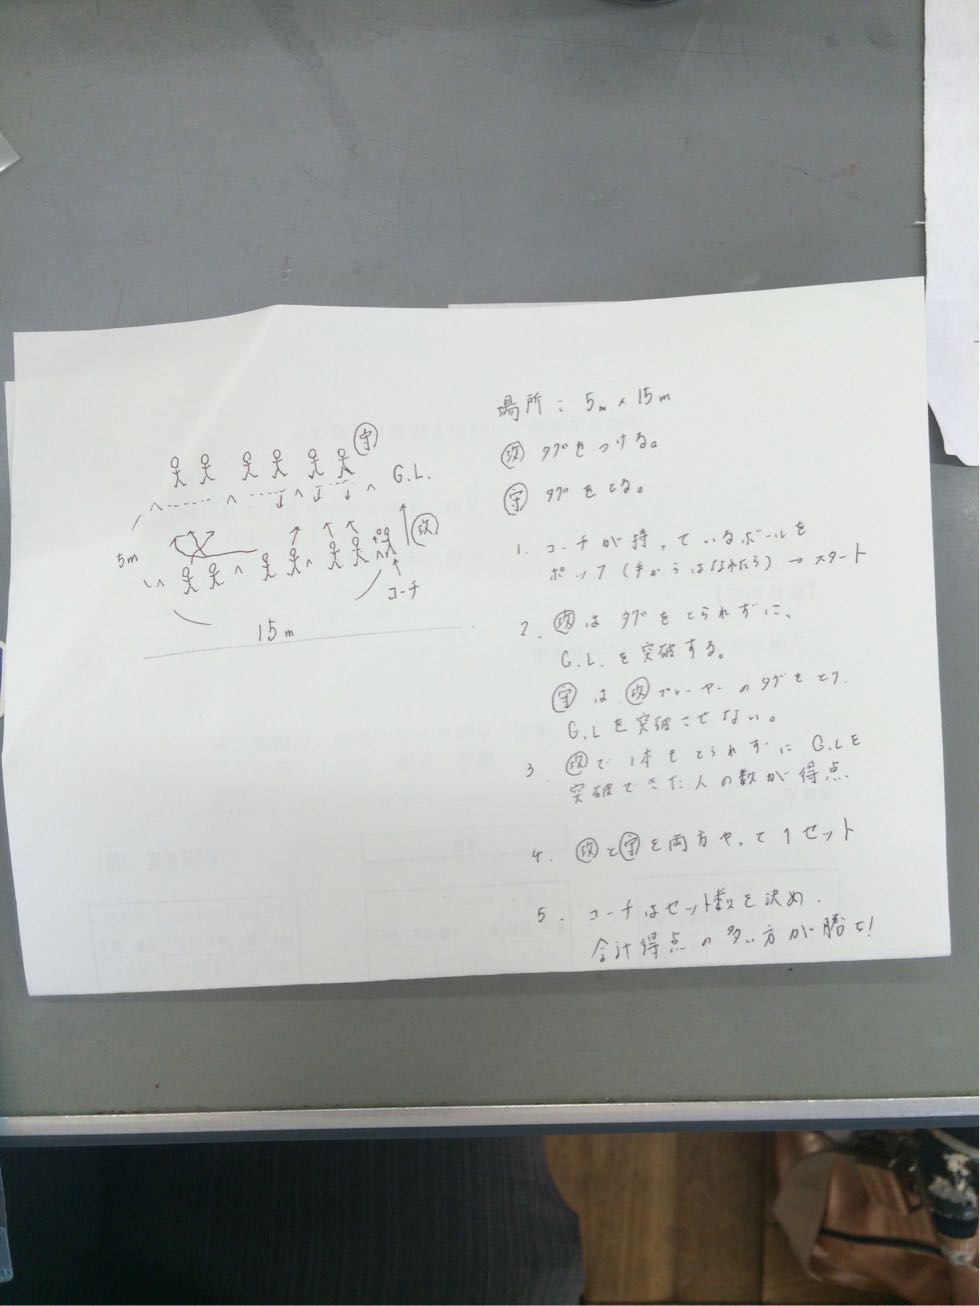 守
G.L.
5m
攻
コーチ
15m
場所：5m×15m
攻 タグをつける。
守 タグをとる。
1. コーチが持っているボールを
ポップ(手からはなれたら)→スタート
2. 攻はタグをとられずに、
G.L.を突破する。
守は、攻プレーヤーのタグをとり、
G.Lを突破させない。
3 攻で1本もとられずにG.Lを
突破できた人の数が得点
4. 攻と守を両方やって1セット
5. コーチはセット数を決め、
合計得点の多い方が勝ち!